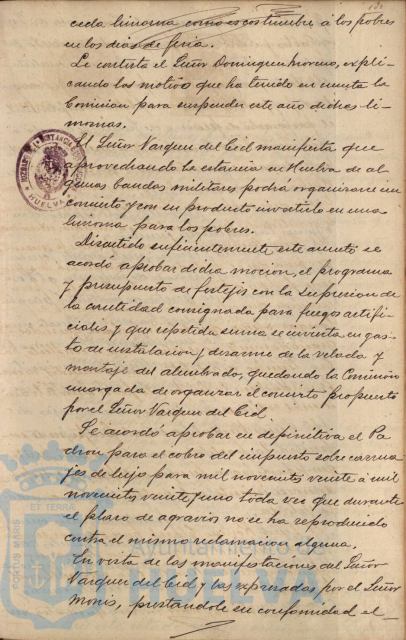 ceda limosna como es costumbre á los pobres
en los días de feria.
Le contesta el Señor Dominguez Moreno, expli-
cando los motivos que ha tenido en cuenta la
Comision para suspender este año dichas li-
mosnas.
El Señor Vazquez del Cid manifiesta que
aprovechando la estancia en Huelva de al-
gunas bandas militares podria organizarse un
concierto y con su producto invertirlo en una
limosna para los pobres.
Discutido suficientemente este asunto se
acordó aprobar dicha mocion, el programa
y presupuesto de festejos con la supresion de
la cantidad consignada para fuegos artifi-
ciales y que repetida suma se invierta en gas-
to de instalacion, desarme de la velada y
montaje del alumbrado, quedando la Comision
encargada de organizar el concierto propuesto
por el Señor Vazquez del Cid.
Se acordó aprobar en definitiva el Pa-
dron para el cobro del impuesto sobre carrua-
jes de lujo para mil novecientos veinte á mil
novecientos veinte y uno toda vez que durante
el plazo de agravios no se ha reproducido
contra el mismo reclamacion alguna.
En vista de las manifestaciones del Señor
Vazquez del Cid y las expresadas por el Señor
Monis, prestandole su conformidad el
HUELVA
PORTUS MARIS
ET TERRAE
Ayuntamiento de
HUELVA